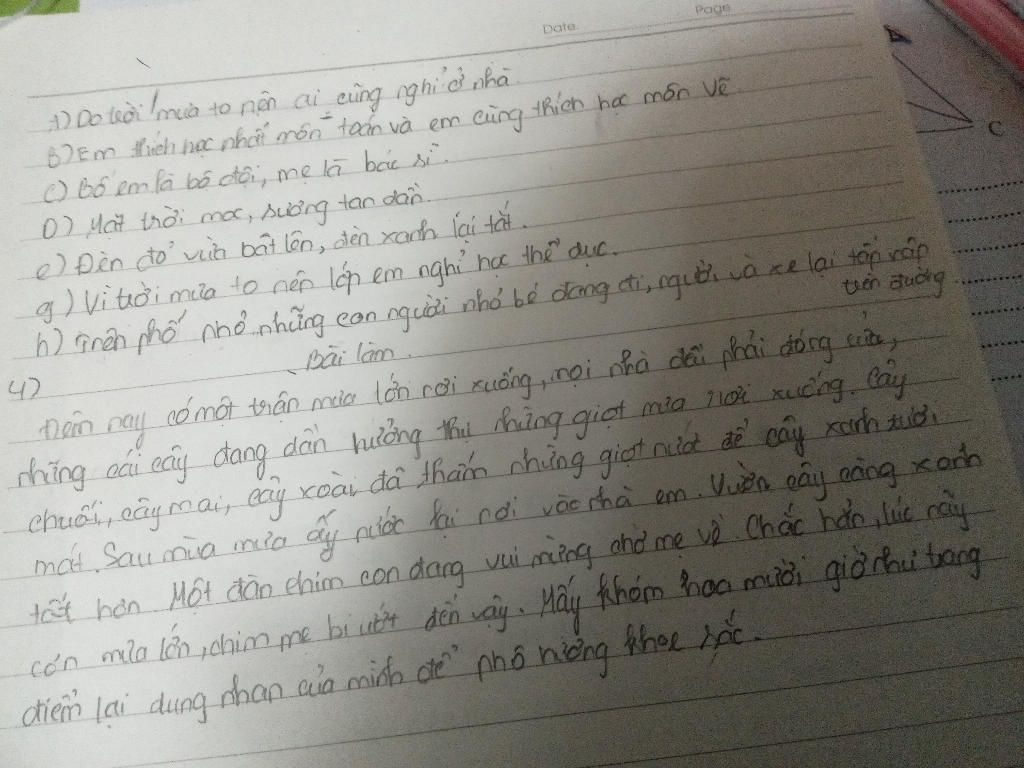 Date
Page
A) Do trời mưa to nên ai cũng nghỉ ở nhà
B) Em thích học nhất môn toán và em cũng thích học môn Vẽ
C) Bố em là bộ đội, mẹ là bác sĩ.
D) Mặt trời mọc, sương tan dần.
e) Đèn đỏ vừa bật lên, đèn xanh lại tắt.
g) Vì trời mưa to nên lớp em nghỉ học thể dục.
h) Trên phố nhỏ, những con người nhỏ bé đang đi, người và xe lại tấp nập
trên đường
Bài làm.
4)
Đêm nay có một trận mưa lớn rơi xuống, mọi nhà đều phải đóng cửa,
những cái cây đang dần hưởng thụ những giọt mưa rơi xuống. Cây
chuối, cây mai, cây xoài đã thấm những giọt nước để cây xanh tươi
mát. Sau mùa mưa ấy nước lại rơi vào nhà em. Vườn cây càng xanh
tốt hơn. Một đàn chim con đang vui mừng chờ mẹ về. Chắc hẳn, lúc nãy
cơn mưa lớn, chim mẹ bị ướt đến vậy. Mấy khóm hoa mười giờ như trang
điểm lại dung nhan của mình để phô hương khoe sắc.
C